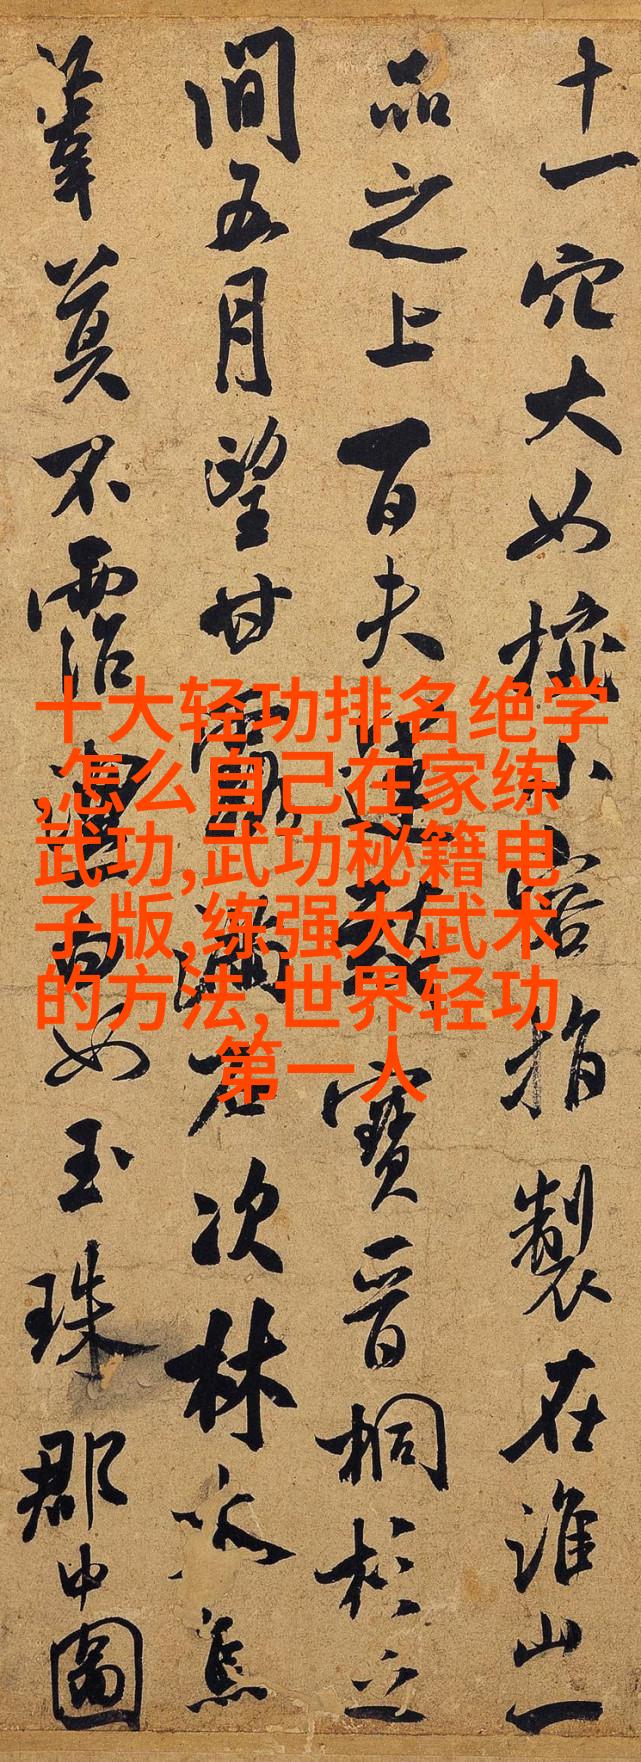 十一穴大如椀小容指製在淮山一
品之上百夫運致寶晉桐杉之
間五月望甘露滿石次林木焦
葦莫不霑潔白如玉珠郡中圖
十大轻功排名绝学
,怎么自己在家练
武功,武功秘籍电
子版,练强大武术
的方法,世界轻功
第一人